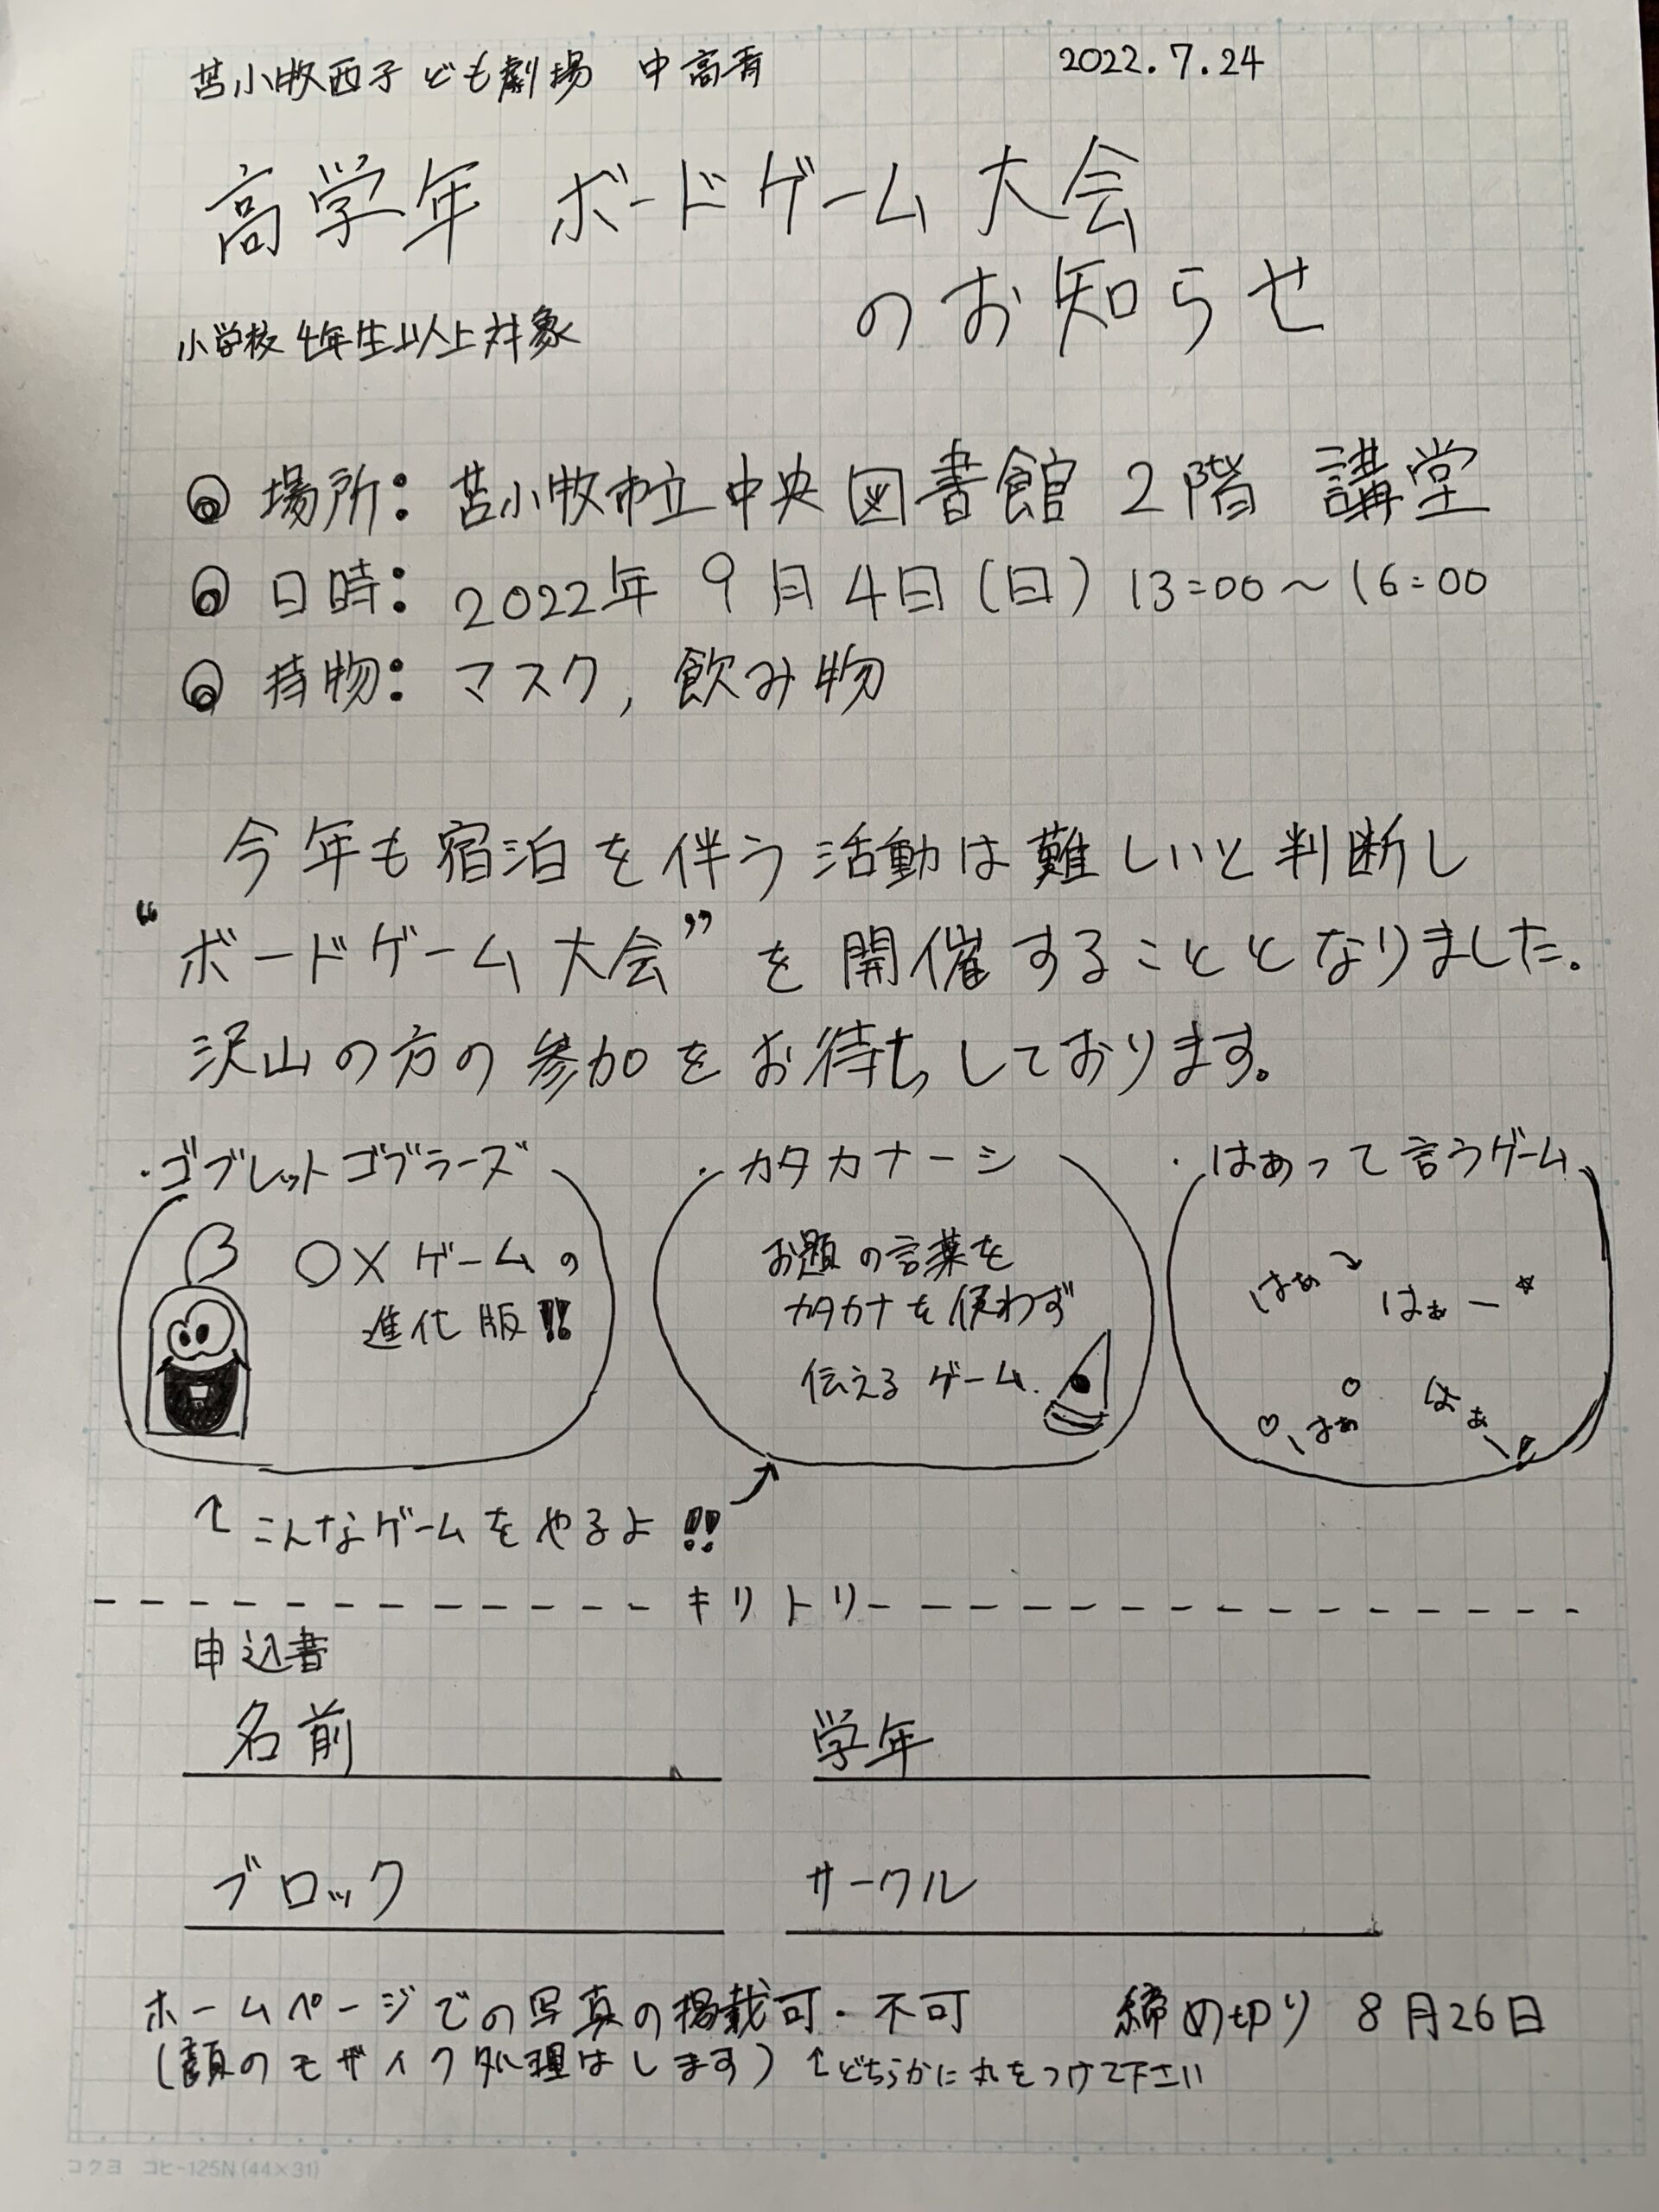 苫小牧西子ども劇場 中高青 2022.7.24
高学年 ボードゲーム大会
のお知らせ
小学校4年生以上対象
◎ 場所: 苫小牧市立中央図書館 2階 講堂
◎ 日時: 2022年 9月4日(日) 13:00〜16:00
◎ 持物: マスク, 飲み物
今年も宿泊を伴う活動は難しいと判断し
“ボードゲーム大会”を開催することとなりました。
沢山の方の参加をお待ちしております。
・ゴブレットゴブラーズ
○×ゲームの
進化版!!
・カタカナーシ
お題の言葉を
カタカナを使わず
伝えるゲーム.
・はあって言うゲーム
はぁ
はぁー☆
♡はぁ
はぁ
↑こんなゲームをやるよ!!
キリトリ
申込書
名前 学年
ブロック サークル
ホームページでの写真の掲載可・不可 締め切り 8月26日
(顔のモザイク処理はします) ↑どちらかに丸をつけて下さい
コクヨ コヒ-125N(44×31)